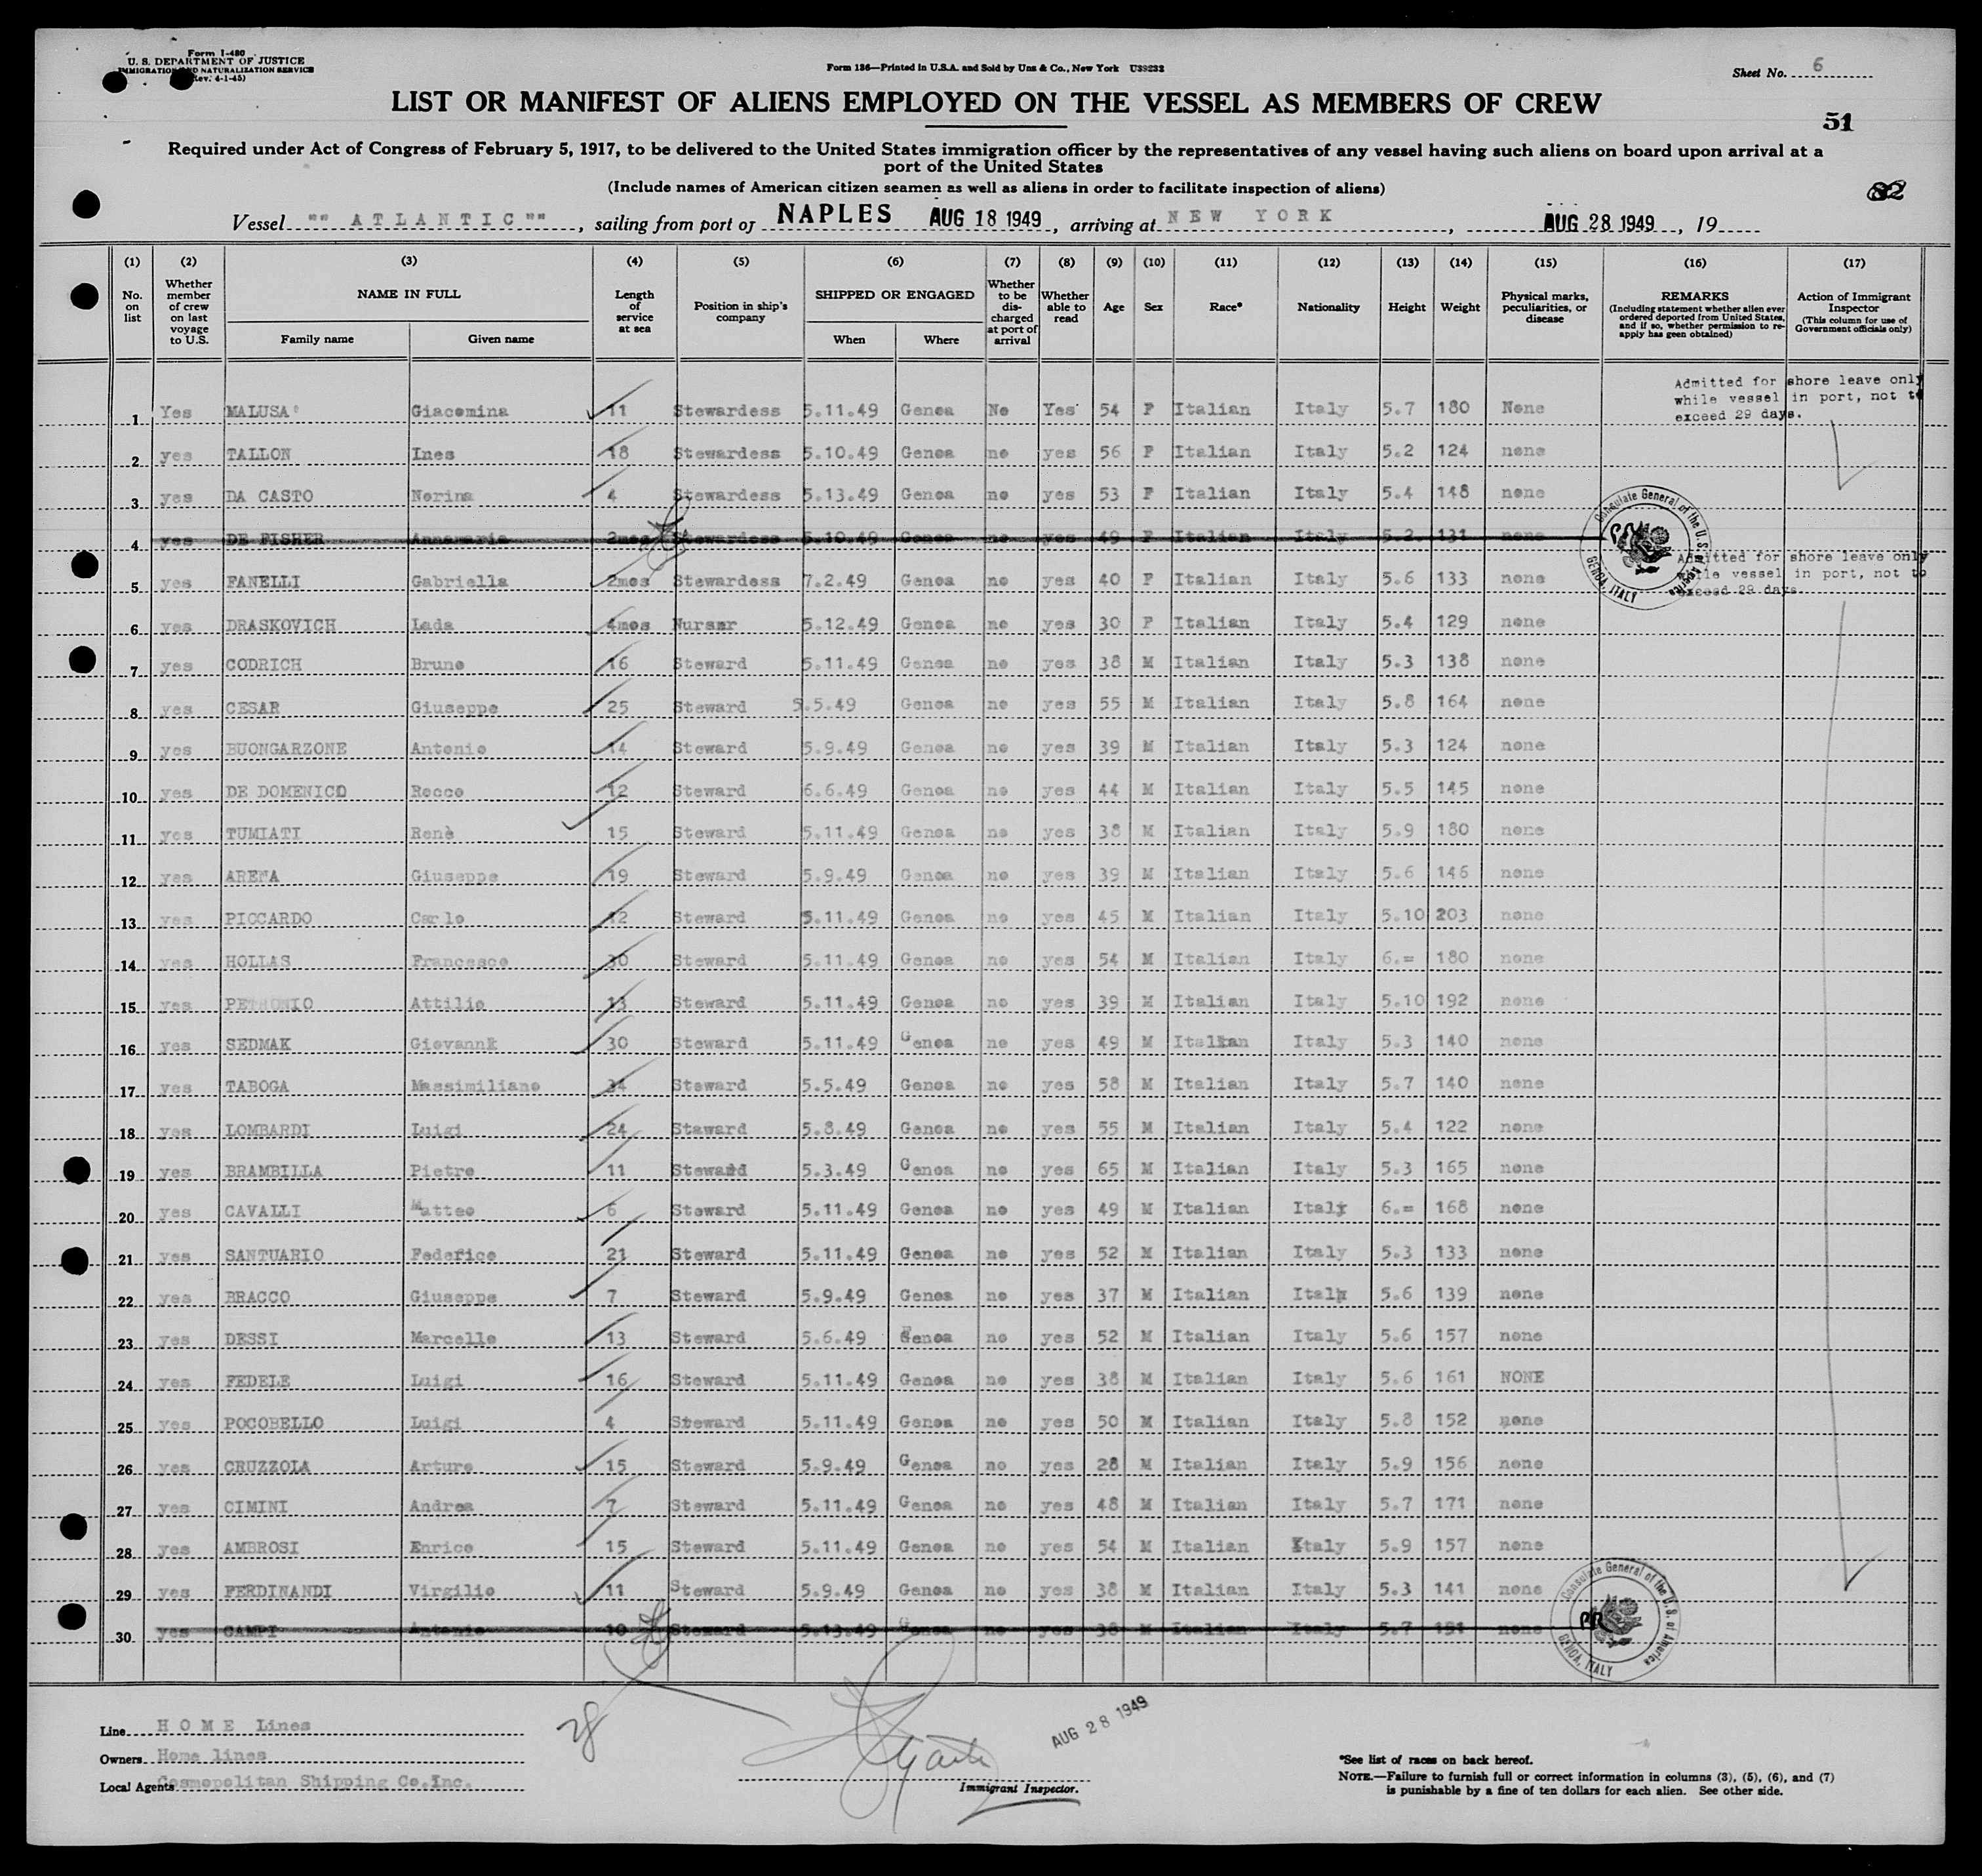 Form I-480
U. S. DEPARTMENT OF JUSTICE
IMMIGRATION AND NATURALIZATION SERVICE
(Rev. 4-1-45)
Form 136—Printed in U.S.A. and Sold by Unz & Co., New York U39232
Sheet No. 6
LIST OR MANIFEST OF ALIENS EMPLOYED ON THE VESSEL AS MEMBERS OF CREW
51
Required under Act of Congress of February 5, 1917, to be delivered to the United States immigration officer by the representatives of any vessel having such aliens on board upon arrival at a
port of the United States
(Include names of American citizen seamen as well as aliens in order to facilitate inspection of aliens)
82
Vessel "" ATLANTIC "", sailing from port of NAPLES AUG 18 1949, arriving at NEW YORK, AUG 28 1949, 19
(1) (2) (3) (4) (5) (6) (7) (8) (9) (10) (11) (12) (13) (14) (15) (16) (17)
No. on list
Whether member of crew on last voyage to U.S.
NAME IN FULL
Family name Given name
Length of service at sea
Position in ship's company
SHIPPED OR ENGAGED
When Where
Whether to be discharged at port of arrival
Whether able to read
Age
Sex
Race*
Nationality
Height
Weight
Physical marks, peculiarities, or disease
REMARKS
(Including statement whether alien ever ordered deported from United States, and if so, whether permission to re-apply has geen obtained)
Action of Immigrant Inspector
(This column for use of Government officials only)
Admitted for shore leave only
while vessel in port, not to
exceed 29 days.
1 Yes MALUSA' Giacomina 11 Stewardess 5.11.49 Genoa No Yes 54 F Italian Italy 5.7 180 None
2 yes TALLON Ines 18 Stewardess 5.10.49 Genoa no yes 56 F Italian Italy 5.2 124 none
3 yes DA CASTO Norina 4 Stewardess 5.13.49 Genoa no yes 53 F Italian Italy 5.4 148 none
4 yes DE FISHER Annamaria 2mos Stewardess 5.10.49 Genoa no yes 49 F Italian Italy 5.2 131 none
Consulate General of the U.S. of America
GENOA, ITALY
Admitted for shore leave only
while vessel in port, not to
exceed 29 days.
5 yes FANELLI Gabriella 2mos Stewardess 7.2.49 Genoa no yes 40 F Italian Italy 5.6 133 none
6 yes DRASKOVICH Lada 4mos Nurser 5.12.49 Genoa no yes 30 F Italian Italy 5.4 129 none
7 yes CODRICH Bruno 16 Steward 5.11.49 Genoa no yes 38 M Italian Italy 5.3 138 none
8 yes CESAR Giuseppe 25 Steward 5.5.49 Genoa no yes 55 M Italian Italy 5.8 164 none
9 yes BUONGARZONE Antonio 14 Steward 5.9.49 Genoa no yes 39 M Italian Italy 5.3 124 none
10 yes DE DOMENICO Rocco 12 Steward 6.6.49 Genoa no yes 44 M Italian Italy 5.5 145 none
11 yes TUMIATI Renè 15 Steward 5.11.49 Genoa no yes 38 M Italian Italy 5.9 180 none
12 yes ARENA Giuseppe 19 Steward 5.9.49 Genoa no yes 39 M Italian Italy 5.6 146 none
13 yes PICCARDO Carlo 12 Steward 5.11.49 Genoa no yes 45 M Italian Italy 5.10 203 none
14 yes HOLLAS Francesco 30 Steward 5.11.49 Genoa no yes 54 M Italian Italy 6.= 180 none
15 yes PETRONIO Attilio 13 Steward 5.11.49 Genoa no yes 39 M Italian Italy 5.10 192 none
16 yes SEDMAK Giovanni 30 Steward 5.11.49 Genoa no yes 49 M Italian Italy 5.3 140 none
17 yes TABOGA Massimiliano 34 Steward 5.5.49 Genoa no yes 58 M Italian Italy 5.7 140 none
18 yes LOMBARDI Luigi 24 Steward 5.8.49 Genoa no yes 55 M Italian Italy 5.4 122 none
19 yes BRAMBILLA Pietro 11 Steward 5.3.49 Genoa no yes 65 M Italian Italy 5.3 165 none
20 yes CAVALLI Matteo 6 Steward 5.11.49 Genoa no yes 49 M Italian Italy 6.= 168 none
21 yes SANTUARIO Federico 21 Steward 5.11.49 Genoa no yes 52 M Italian Italy 5.3 133 none
22 yes BRACCO Giuseppe 7 Steward 5.9.49 Genoa no yes 37 M Italian Italy 5.6 139 none
23 yes DESSI Marcello 13 Steward 5.6.49 Genoa no yes 52 M Italian Italy 5.6 157 none
24 yes FEDELE Luigi 16 Steward 5.11.49 Genoa no yes 38 M Italian Italy 5.6 161 NONE
25 yes POCOBELLO Luigi 4 Steward 5.11.49 Genoa no yes 50 M Italian Italy 5.8 152 none
26 yes CRUZZOLA Arturo 15 Steward 5.9.49 Genoa no yes 28 M Italian Italy 5.9 156 none
27 yes CIMINI Andrea 7 Steward 5.11.49 Genoa no yes 48 M Italian Italy 5.7 171 none
28 yes AMBROSI Enrico 15 Steward 5.11.49 Genoa no yes 54 M Italian Italy 5.9 157 none
29 yes FERDINANDI Virgilio 11 Steward 5.9.49 Genoa no yes 38 M Italian Italy 5.3 141 none
30 yes CAMPI Antonio 10 Steward 5.13.49 Genoa no yes 38 M Italian Italy 5.7 151 none
Consulate General of the U.S. of America
GENOA, ITALY
28
AUG 28 1949
Line HOME Lines
Owners Home lines
Local Agents Cosmopolitan Shipping Co.Inc.
Immigrant Inspector.
*See list of races on back hereof.
NOTE.—Failure to furnish full or correct information in columns (3), (5), (6), and (7)
is punishable by a fine of ten dollars for each alien. See other side.